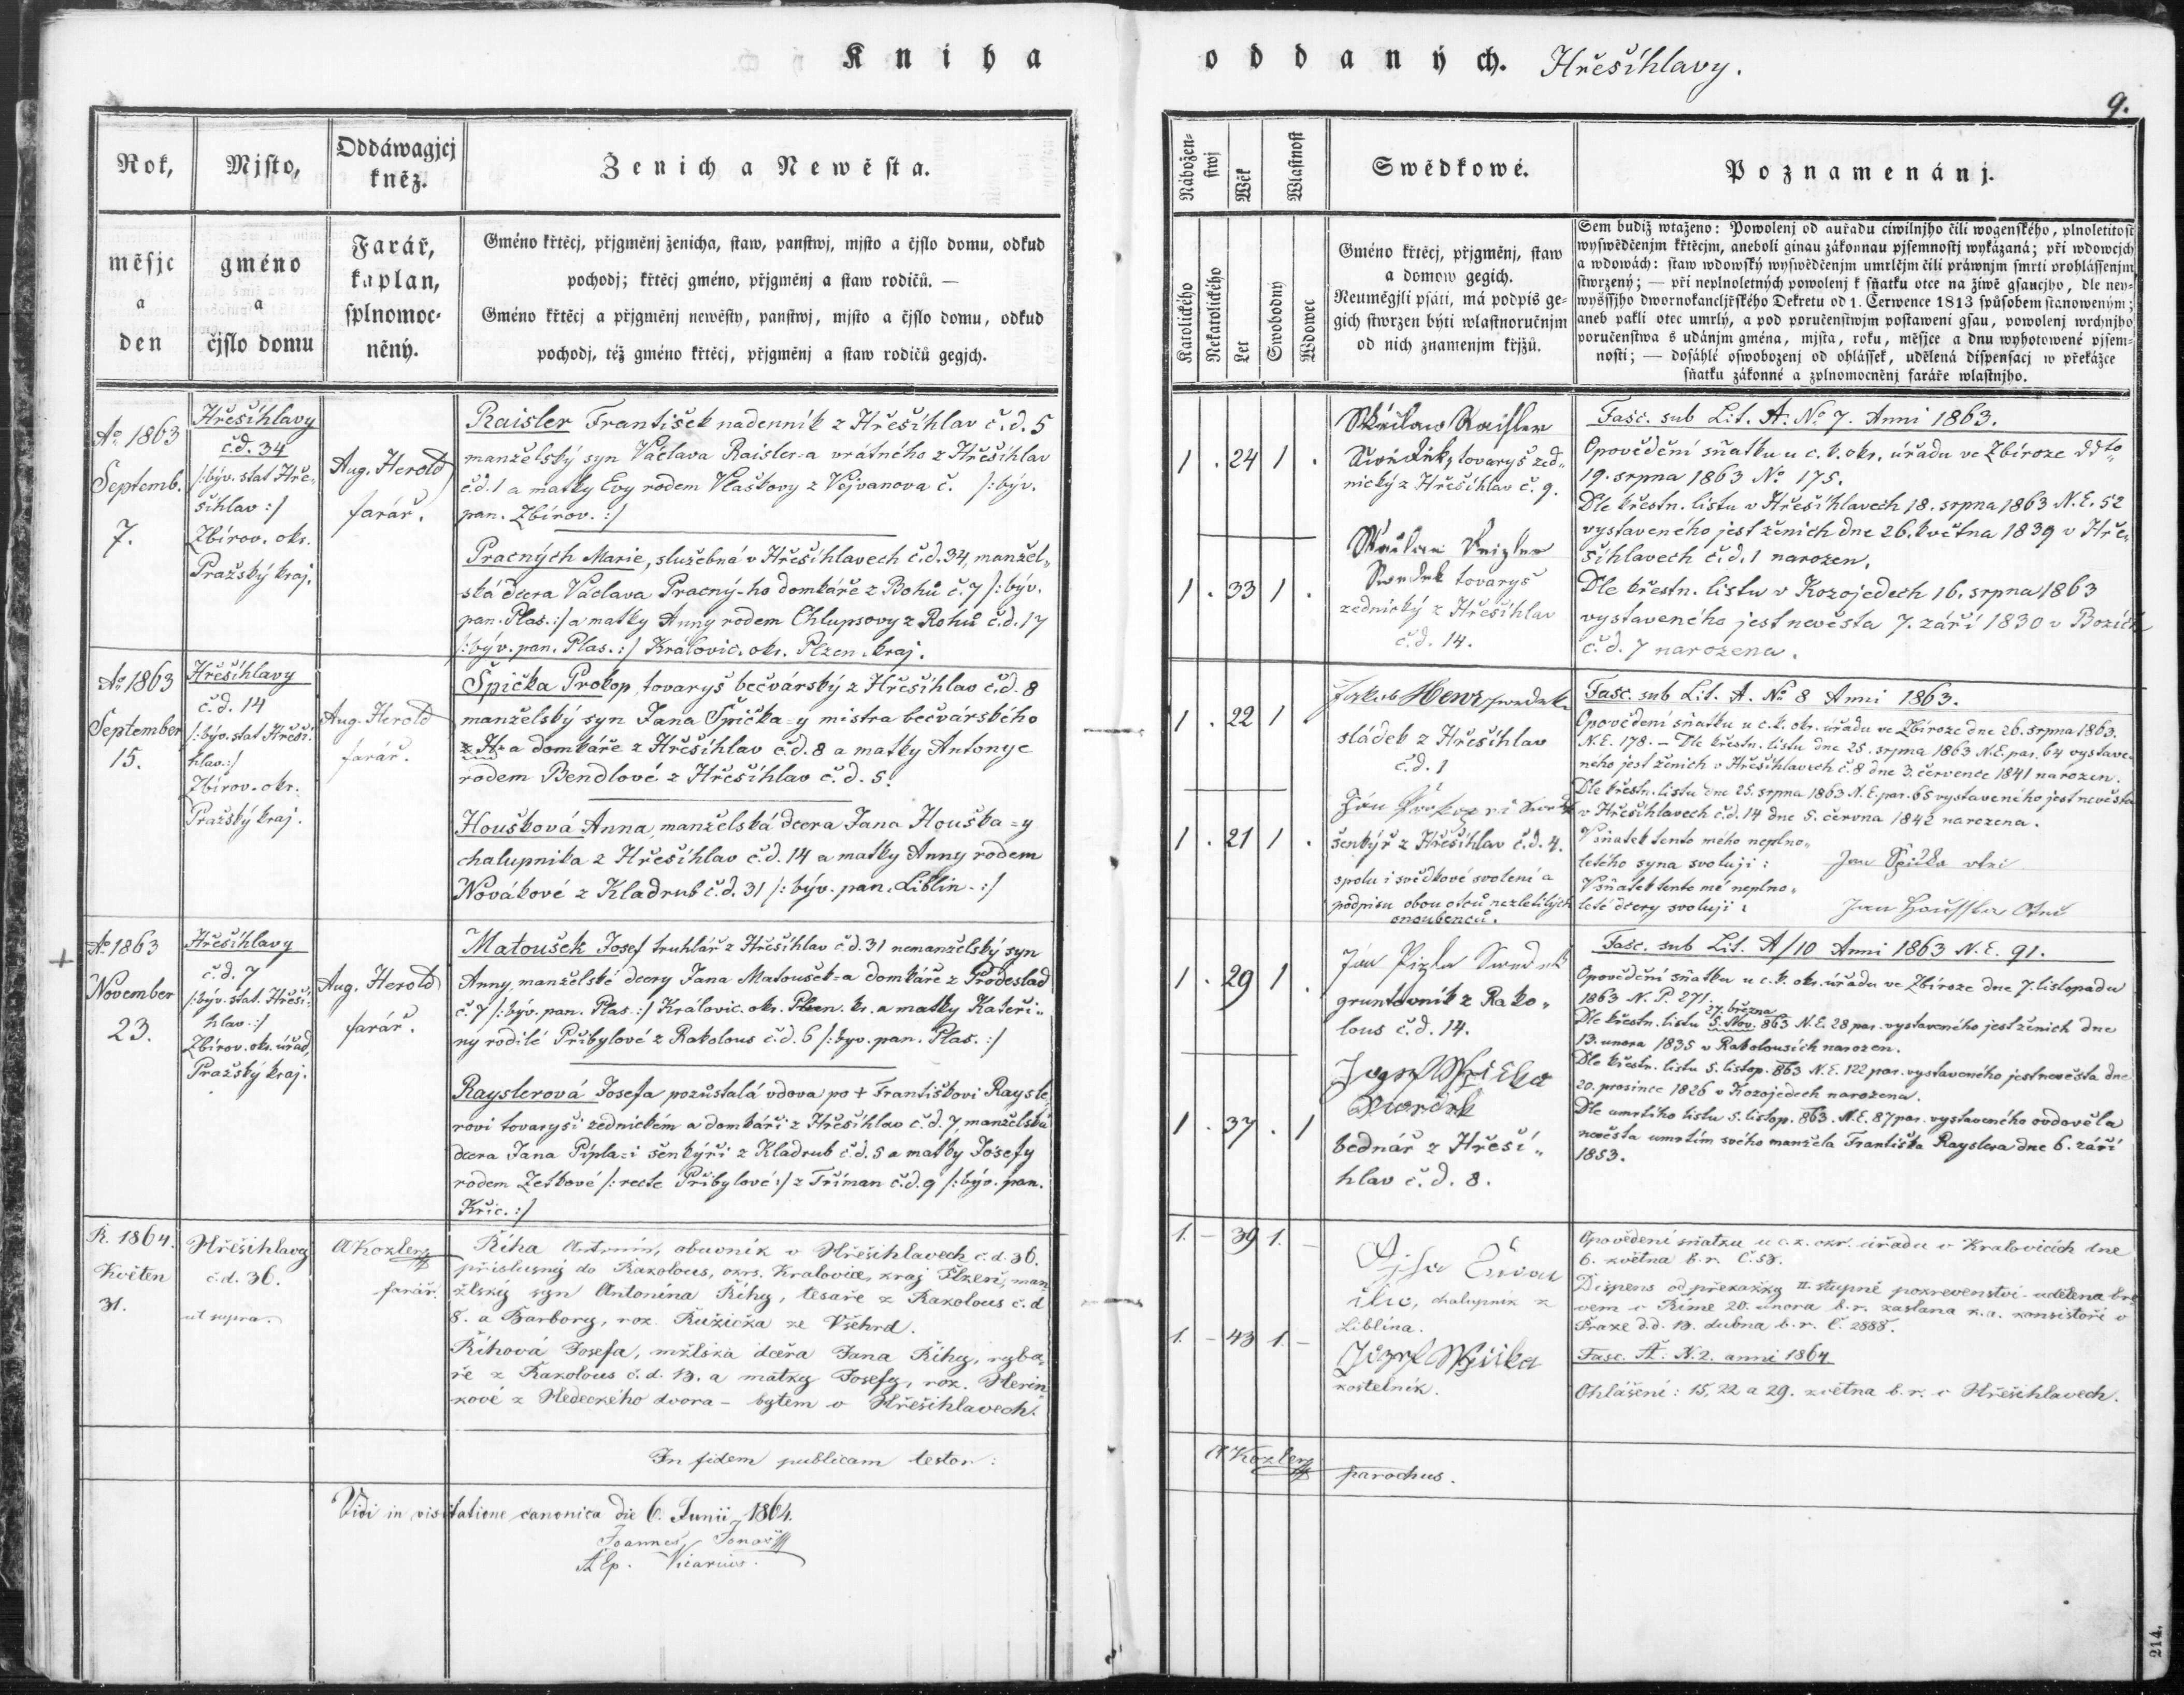 Kniha oddaných. Hřešihlavy.
9.
Rok,
měsjc
a
den
Mjsto,
gméno
a
čjslo domu
Oddáwagjcj
kněz.
Farář,
kaplan,
splnomoc-
něný.
Ženich a Newěsta.
Gméno křtěcj, přjgměnj ženicha, staw, panstwj, mjsto a čjslo domu, odkud
pochodj; křtěcj gméno, přjgměnj a staw rodičů. —
Gméno křtěcj a přjgměnj newěsty, panstwj, mjsto a čjslo domu, odkud
pochodj, též gméno křtěcj, přjgměnj a staw rodičů gegjch.
Nábožen-
stwj
Wěk
Wlastnost
Katolického
Nekatolického
Let
Swobodný
Wdowec
Swědkowé.
Gméno křtěcj, přjgměnj, staw
a domow gegich.
Neuměgjli psáti, má podpis ge-
gich stwrzen býti wlastnoručnjm
od nich znamenjm křjžů.
Poznamenánj.
Sem budiž wtaženo: Powolenj od auřadu ciwilnjho čili wogenského, plnoletitost
wyswědčenjm křtěcjm, aneboli ginau zákonnau pjsemnostj wykázaná; při wdowcjch
a wdowách: staw wdowský wyswědčenjm umrlčjm čili práwnjm smrti prohlássenjm
stwrzený; — při neplnoletných powolenj k sňatku otce na žiwě gsaucjho, dle ney-
wyššjho dwornokancljřského Dekretu od 1. Čerwence 1813 spůsobem stanoweným;
aneb pakli otec umrlý, a pod poručenstwjm postaweni gsau, powolenj wrchnjho
poručenstwa s udánjm gména, mjsta, roku, měsjce a dnu wyhotowené pjsem-
nosti; — dosáhlé oswobozenj od ohlássek, udělená dispensacj w překážce
sňatku zákonné a zplnomocněnj faráře wlastnjho.
Aº 1863
Septemb.
7.
Hřešihlavy
č.d. 34
/:býv. stat Hře-
šihlav:/
Zbirov. okr.
Pražský kraj.
Aug. Herold
farář.
Raisler František nadenník z Hřešihlav č.d. 5
manželský syn Václava Raisler-a vrátného z Hřešihlav
č.d. 1 a matky Evy rodem Vlaškovy z Vojvanova č. /:býv.
pan. Zbirov.:/
Pracných Marie, služebná v Hřešihlavech č.d. 34, manžel-
ská dcera Václava Pracný-ho domkáře z Bohů č. 7 /:býv.
pan. Plas.:/ a matky Anny rodem Chlupsovy z Rohů č.d. 17
/:býv. pan. Plas.:/ Královic. okr. Plzen. kraj.
1 . 24 1 .
1 . 33 1 .
Swědek, tovaryš zed-
nický z Hřešihlav č. 9.
tovaryš
zednický z Hřešihlav
č.d. 14.
Fasc. sub Lit. A. Nº 7. Anni 1863.
Opovědění sňatku u c.k. okr. úřadu ve Zbiroze ddto
19. srpna 1863 Nº 175.
Dle křestn. listu v Hřešihlavech 18. srpna 1863 N.E. 52
vystaveného jest ženich dne 26. května 1839 v Hře-
šihlavech č.d. 1 narozen.
Dle křestn. listu v Kozojedech 16. srpna 1863
vystaveného jest nevěsta 7. září 1830 v
č.d. 7 narozena.
Aº 1863
September
15.
Hřešihlavy
č.d. 14
/:býv. stat Hřeši-
hlav.:/
Zbirov. okr.
Pražský kraj.
Aug. Herold
farář.
Špička Prokop, tovaryš bečvárský z Hřešihlav č.d. 8
manželský syn Jana Špička=y mistra bečvárského
a domkáře z Hřešihlav č.d. 8 a matky Antonye
rodem Bendlové z Hřešihlav č.d. 5.
Houšková Anna, manželská dcera Jana Houška=y
chalupníka z Hřešihlav č.d. 14 a matky Anny rodem
Novákové z Kladrub č.d. 31 /:býv. pan. Liblin.:/
1 . 22 1
1 . 21 1 .
Jakub Henz swedek
sládek z Hřešihlav
č.d. 1
Ján
šenkýř z Hřešihlav č.d. 4.
spolu i svědkové svolení a
podpisu obou otců nezletilých
snoubenců.
Fasc. sub Lit. A. Nº 8 Anni 1863.
Opovědení sňatku u c.k. okr. úřadu ve Zbiroze dne 26. srpna 1863.
N.E. 178. – Dle křestn. listu dne 25. srpna 1863 N.E. par. 64 vystave-
neho jest ženich v Hřešihlavech č. 8 dne 3. července 1841 narozen.
Dle křestn. listu dne 25. srpna 1863 N.E. par. 65 vystaveného jest nevěsta
v Hřešihlavech č.d. 14 dne 5. června 1842 narozena.
V sňatek tento mého neplno-
letého syna svoluji: Jan Špička otec
V sňatek tento mé neplno-
leté dcery svoluji: Jan Housska Otec
Aº 1863
November
23.
Hřešihlavy
č.d. 7
/:býv. stat. Hřeši-
hlav.:/
Zbirov. okr. úřad,
Pražský kraj.
Aug. Herold
farář.
Matoušek Josef truhlář z Hřešihlav č.d. 31 nemanželský syn
Anny, manželské dcery Jana Matoušek=a domkáře z Hrodeslad
č. 7 /:býv. pan. Plas.:/ Královic. okr. Plzen. kr. a matky Kateři-
ny rodilé Přibylové z Rakolous č.d. 6 /:byv. pan. Plas.:/
Rayslerová Josefa pozůstalá vdova po + Františkovi Raysle-
rovi tovaryši zednickém a domkáři z Hřešihlav č.d. 7, manželská
dcera Jana Pipla=i šenkýři z Kladrub č.d. 5 a matky Josefy
rodem Zetkové /:recte Přibylové:/ z Tříman č.d. 9 /:býv. pan.
Křic.:/
1 . 29 1 .
1 . 37 . 1
Ján Pizla Swedek
gruntovník z Rako-
lous č.d. 14.
bednář z Hřeší-
hlav č.d. 8.
Fasc. sub Lit. A/10 Anni 1863 N.E. 91.
Opovědění sňatku u c.k. okr. úřadu ve Zbiroze dne 7. listopadu
1863 N.P. 271.
27. března
Dle křestn. listu 5. Nov. 863 N.E. 28 par. vystaveného jest ženich dne
13. unora 1835 v Rakolousích narozen.
Dle křestn. listu 5. listop. 863 N.E. 122 par. vystaveného jest nevěsta dne
20. prosince 1826 v Kozojedech narozena.
Dle umrtího listu 5. listop. 863. N.E. 87 par. vystaveného ovdověla
nevěsta umrtím svého manžela Františka Rayslera dne 6. září
1853.
R. 1864.
Květen
31.
Hřešihlavy
č.d. 36.
ut supra.
A Kozler
farář.
Říha Antonín, obuvník v Hřešihlavech č.d. 36.
příslusný do Rakolous, okrs. Kralovice, kraj Plzeň, man-
žlský syn Antonína Říhy, tesaře z Rakolous č.d
8. a Barbory, roz. Růžička ze Všehrd.
Říhová Josefa, mžlská dcera Jana Říhy, ryba-
ře z Rakolous č.d. 13. a mátky Josefy, roz.
kové z Hedeckého dvora – bytem v Hřešihlavech.
1. – 39 1. –
1. – 43 1. –
chalupník z
Liblína.
kostelník.
Opovědení sňatku u c.k. okr. úřadu v Kralovicích dne
6. května b.r. Č. 58.
Dispens od překážky II. stupně pokrevenství - udělena bre-
vem v Římě 20. února b.r. zaslana k.a. konsistoří v
Praze d.d. 13. dubna b.r. č. 2888.
Fasc. A. N. 2. anni 1864
Ohlášení: 15, 22 a 29. května b.r. v Hřešihlavech.
In fidem publicam testor:
A Kozler
parochus.
Vidi in visitatione canonica die 6. Junii 1864.
Joannes Jonas
A Ep. Vicarius.
214.